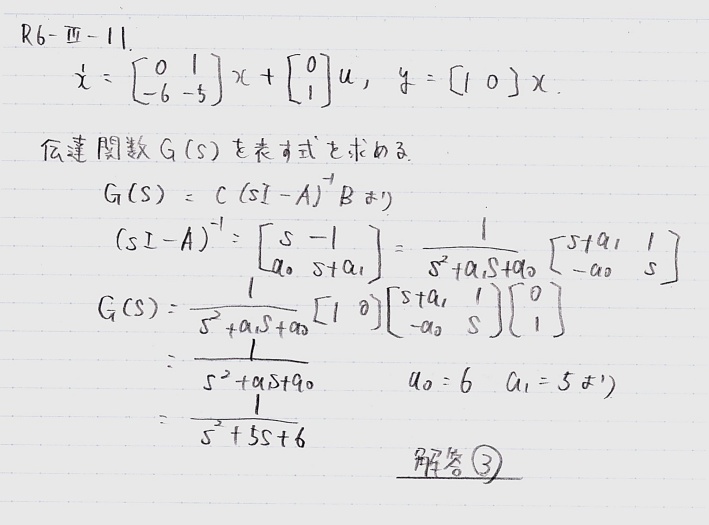 R6-Ⅲ-11.
ẋ = [0 1 -6 -5] x + [0 1] u, y = [1 0] x.
伝達関数G(S)を表す式を求める.
G(S) = C (sI-A)⁻¹ B より
(sI-A)⁻¹ = [s -1 a₀ s+a₁] = 1/(s²+a₁s+a₀) [s+a₁ 1 -a₀ s]
G(S) = 1/(s²+a₁s+a₀) [1 0] [s+a₁ 1 -a₀ s] [0 1]
= 1/(s²+a₁s+a₀) a₀=6 a₁=5 より
= 1/(s²+5s+6)
解答③